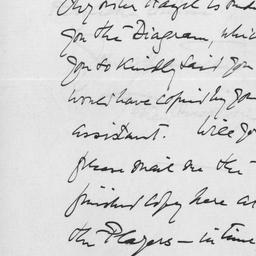 you the Diagram, whic
you so kindly said you
would have copied by you
assistant. Will yo
please mail me the
finished copy here a
the Players — in time